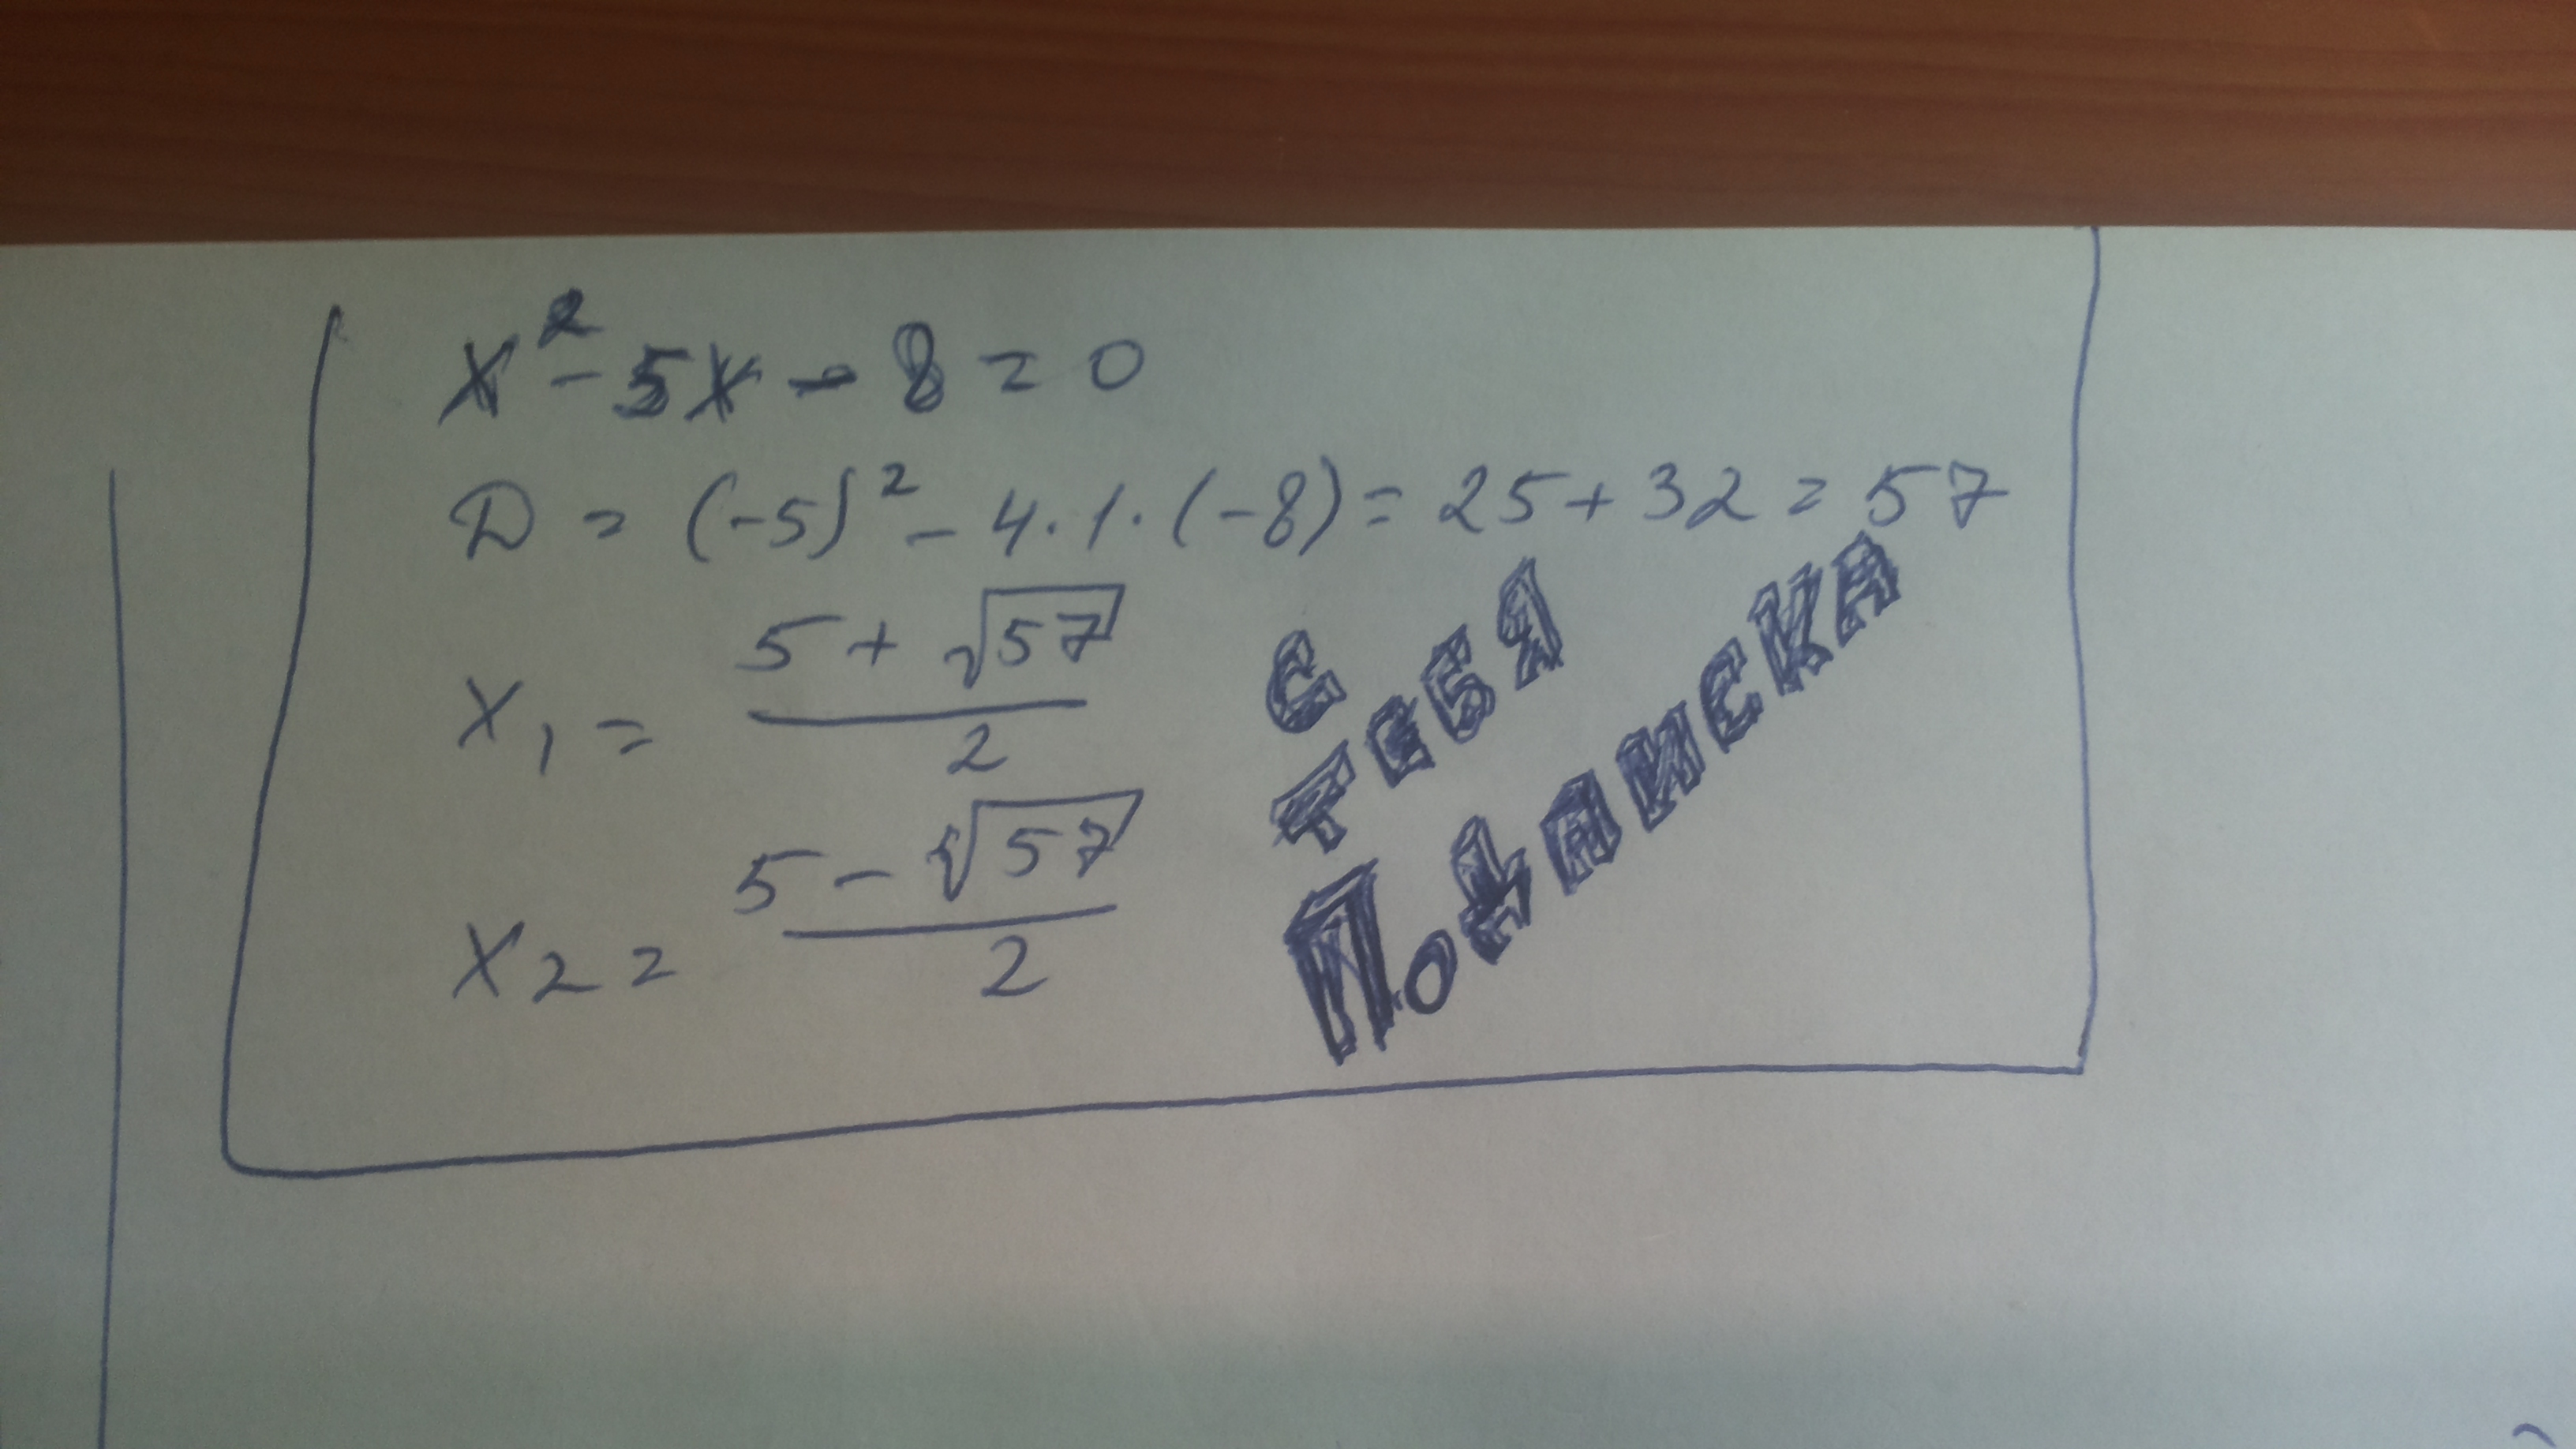 x² - 5x - 8 = 0
D = (-5)² - 4·1·(-8) = 25 + 32 = 57
x₁ = (5 + √57)/2
x₂ = (5 - √57)/2
С
тебя
Подписка